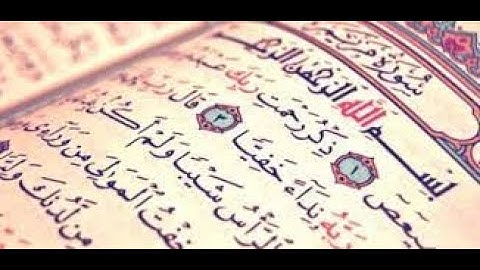 سُورَةُ مَرْيَم
بِسْمِ اللَّهِ الرَّحْمَٰنِ الرَّحِيمِ
يعٓصٓ ١ ذِكْرُ رَحْمَتِ رَبِّكَ عَبْدَ
رَبَّهُ نِدَآءً خَفِيًّا ٣ قَالَ رَبِّ
الرَّأْسُ شَيْبًا وَلَمْ أَكُنۢ
خِفْتُ الْمَوَٰلِيَ مِن وَرَآءِى
مِن لَّدُنكَ وَلِ